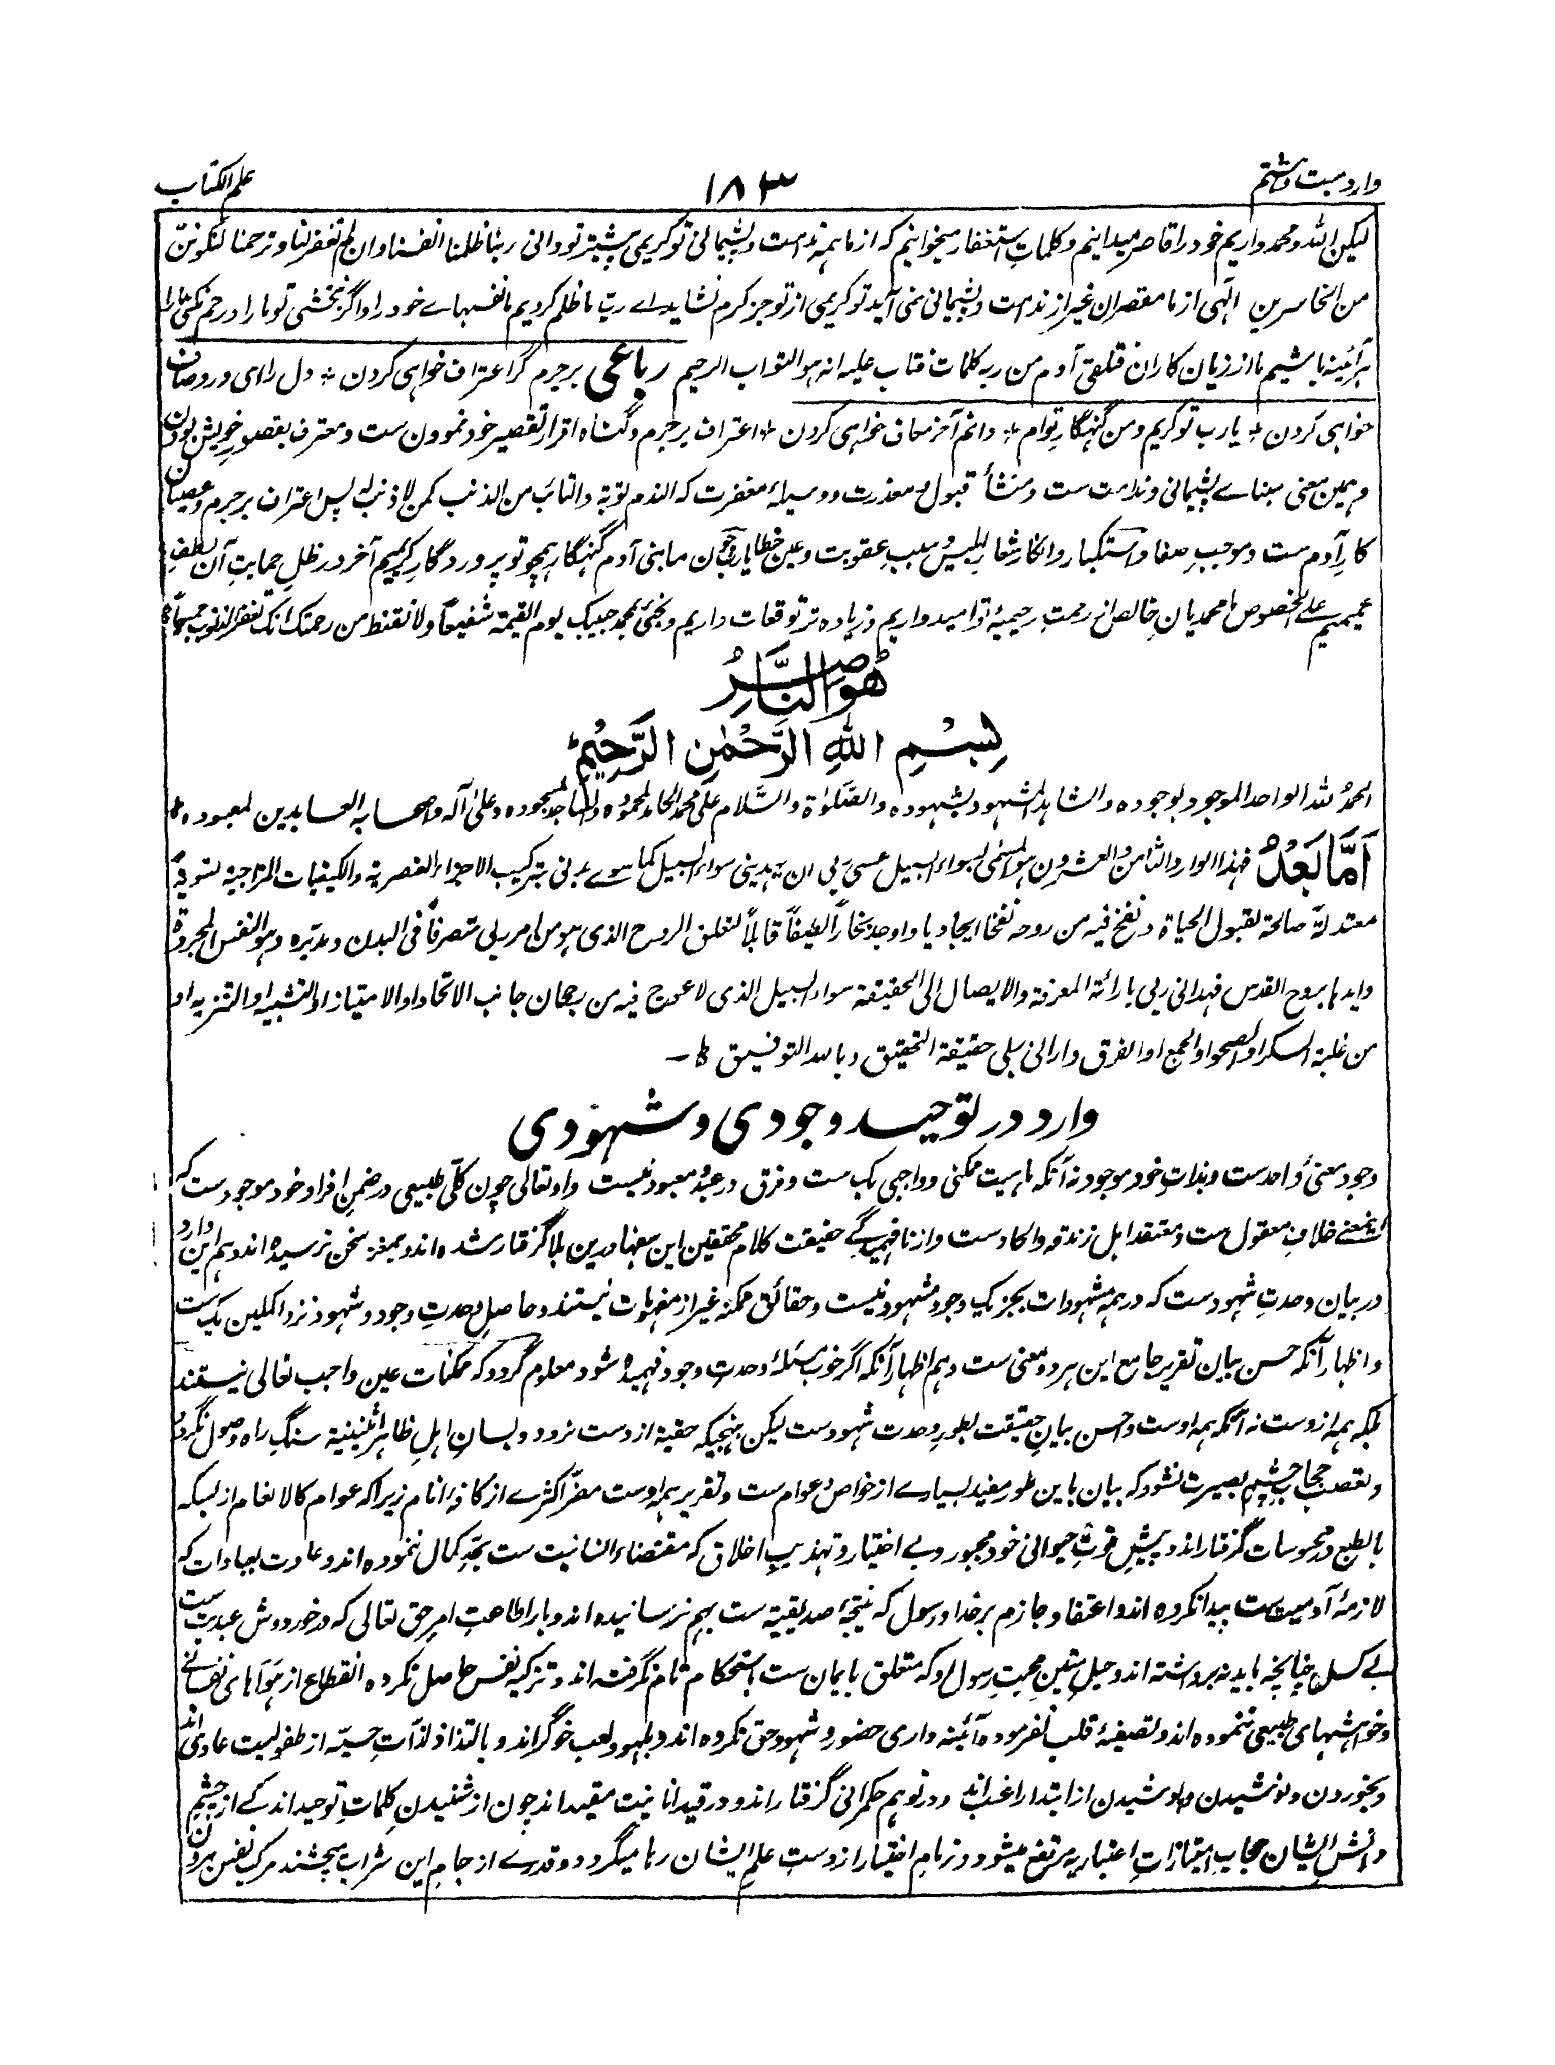 وارد بست و هشتم
۱۸۳
علم الکتاب
لیکن الله و محمد و اریم خود را قاصر میدانیم و کلمات استغفار میخوانیم که از ما همه ندامت و پشیمانی تو کریمی بیشتر تو دانی ربنا ظلمنا انفسنا و ان لم تغفر لنا و ترحمنا لنکونن
من الخاسرین الهی از ما مقصران غیر از ندامت و پشیمانی نمی آید تو کریمی از تو جز کرم نشاید اے رب ما ظلم کردیم ما نفسهاے خود را و اگر نبخشی تو ما را و رحم نکنی ما را
هر آئینه باشیم ما از زیان کاران فتلقی آدم من ربه کلمات فتاب علیه انه هو التواب الرحیم رباعی بر جرم گر اعتراف خواهی کردن + دل را ای درد صاف
خواهی کردن + یارب تو کریم و من گنهگار توام + دانم آخر معاف خواهی کردن + اعتراف بر جرم و گناه اقرار تقصیر خود نمودن ست و معترف بقصور خویش بودن
و همین معنی مبناے پشیمانی و ندامت ست و منشأ قبول معذرت و وسیلۂ مغفرت که الندم توبة و التائب من الذنب کمن لا ذنب له پس اعتراف بر جرم و عصیان
کار آدم ست و موجب صفا و استکبار و انکار شعار ابلیس و سبب عقوبت و عین خطا یارب چون ما بنی آدم گنهگار همچو تو پروردگار کریمیم آخر در ظل حمایت آن لطف
عمیمیم علی الخصوص ما محمدیان خالص از رحمت رحیمیۂ تو امیدواریم و زیاده تر توقعات داریم و نجئ بمحمد حبیبک یوم القیمة شفیعاً و لا نقنط من رحمتک انک تغفر الذنوب جمیعاً
هو الناصر
بسم الله الرحمٰن الرحیم
الحمد لله الواحد الموجود بوجوده و الشاهد المشهود بشهوده و الصلوٰة و السلام علی محمد الحامد لمحموده و الساجد لمسجوده و علی آله و اصحابه العابدین لمعبوده
اما بعد فهذا الوارد الثامن و العشرون هو المسمی بسواء السبیل عسی ربی ان یهدینی سواء السبیل کما سوے بدنی بترکیب الاجزاء العنصریة و الکیفیات المزاجیة تسویة
معتدلة صالحة لقبول الحیاة و نفخ فیه من روحه نفخا ایجادیا و اوجد بخاراً لطیفاً قابلاً لتعلق الروح الذی هو من امر ربی متصرفاً فی البدن و مدبره و هو النفس المجردة
و ایدها بروح القدس فهدانی ربی بارائة المعرفة و الایصال الی الحقیقة سواء السبیل الذی لا عوج فیه من رجحان جانب الاتحاد او الامتیاز او التشبیه او التنزیه او
من غلبة السکر او الصحو او الجمع او الفرق و ارانی سبلی حقیقة التحقیق و بالله التوفیق
وارد در توحید وجودی و شهودی
وجود معنی واحد ست و بذات خود موجود نه آنکه ماهیت ممکنی و واجبی یک ست و فرق در عبد و معبود نیست و او تعالی چون کلی طبیعی در ضمن افراد خود موجود ست که
اینمعنے خلاف معقول ست و معتقد اهل زندقه و الحاد ست و از نافهمیدگے حقیقت کلام محققین این سفها درین بلا گرفتار شده اند و بمغز سخن نرسیده اند و هم این وارد
در بیان وحدت شهود ست که در همه مشهودات بجز یک وجود مشهود نیست و حقائق ممکنه غیر از مفهومات نیستند و حاصل وحدت وجود و شهود نزد اکملین یک ست
و اظهار آنکه حسن بیان تقریر جامع این هر دو معنی ست و هم اظهار آنکه اگر خوب مسئلۂ وحدت وجود فهمیده شود معلوم گردد که ممکنات عین واجب تعالی نیستند
بلکه همه از وست نه آنکه همه اوست و احسن بیان حقیقت بطور وحدت شهود ست لیکن بنهجیکه حقیقة از دست نرود و بسان اهل ظاهر اثنینیة سنگ راه وصول نگردد
و تعصب حجاب چشم بصیرت نشود که بیان باین طور مفید بسیارے از خواص و عوام ست و تقریر همه اوست مضر اکثرے از کافۂ انام زیرا که عوام کالانعام از بسکه
بالطبع در محسوسات گرفتار اند و پیش قوت حیوانی خود مجبور و بے اختیار و تهذیب اخلاق که مقتضاء انسانیت ست بحد کمال ننموده اند و عادت بعبادات که
لازمۂ آدمیت ست پیدا نکرده اند و اعتقاد جازم بر خدا و رسول که نتیجۂ صدیقیة ست بهم نرسانیده اند و بار اطاعت امر حق تعالی که در خور دوش عبدیت ست
بے کسل چنانچه باید نه برداشته اند و حبل متین محبت رسول او که متعلق بایمان ست باستحکام تام نگرفته اند و تزکیه نفس حاصل نکرده انقطاع از هواهای نفسانے
و خواهشهای طبیعی ننموده اند و تصفیۂ قلب نفرموده آئینه داری حضور و شهود حق نکرده اند و بلهو و لعب خوگر اند و بالتذاذ لذات حسیه از طفولیت عادی اند
و بخوردن و نوشیدن و پوشیدن از ابتدا راغب اند و در توهم حکمرانی گرفتار اند و در قید انانیت مقید اند چون از شنیدن کلمات توحید اندکے از چشم
دانش ایشان حجاب امتیازات اعتباریه مرتفع میشود و زمام اختیار از دست علم ایشان رها میگردد و قدرے از جام این شراب میچشند مرکب نفس بیرون